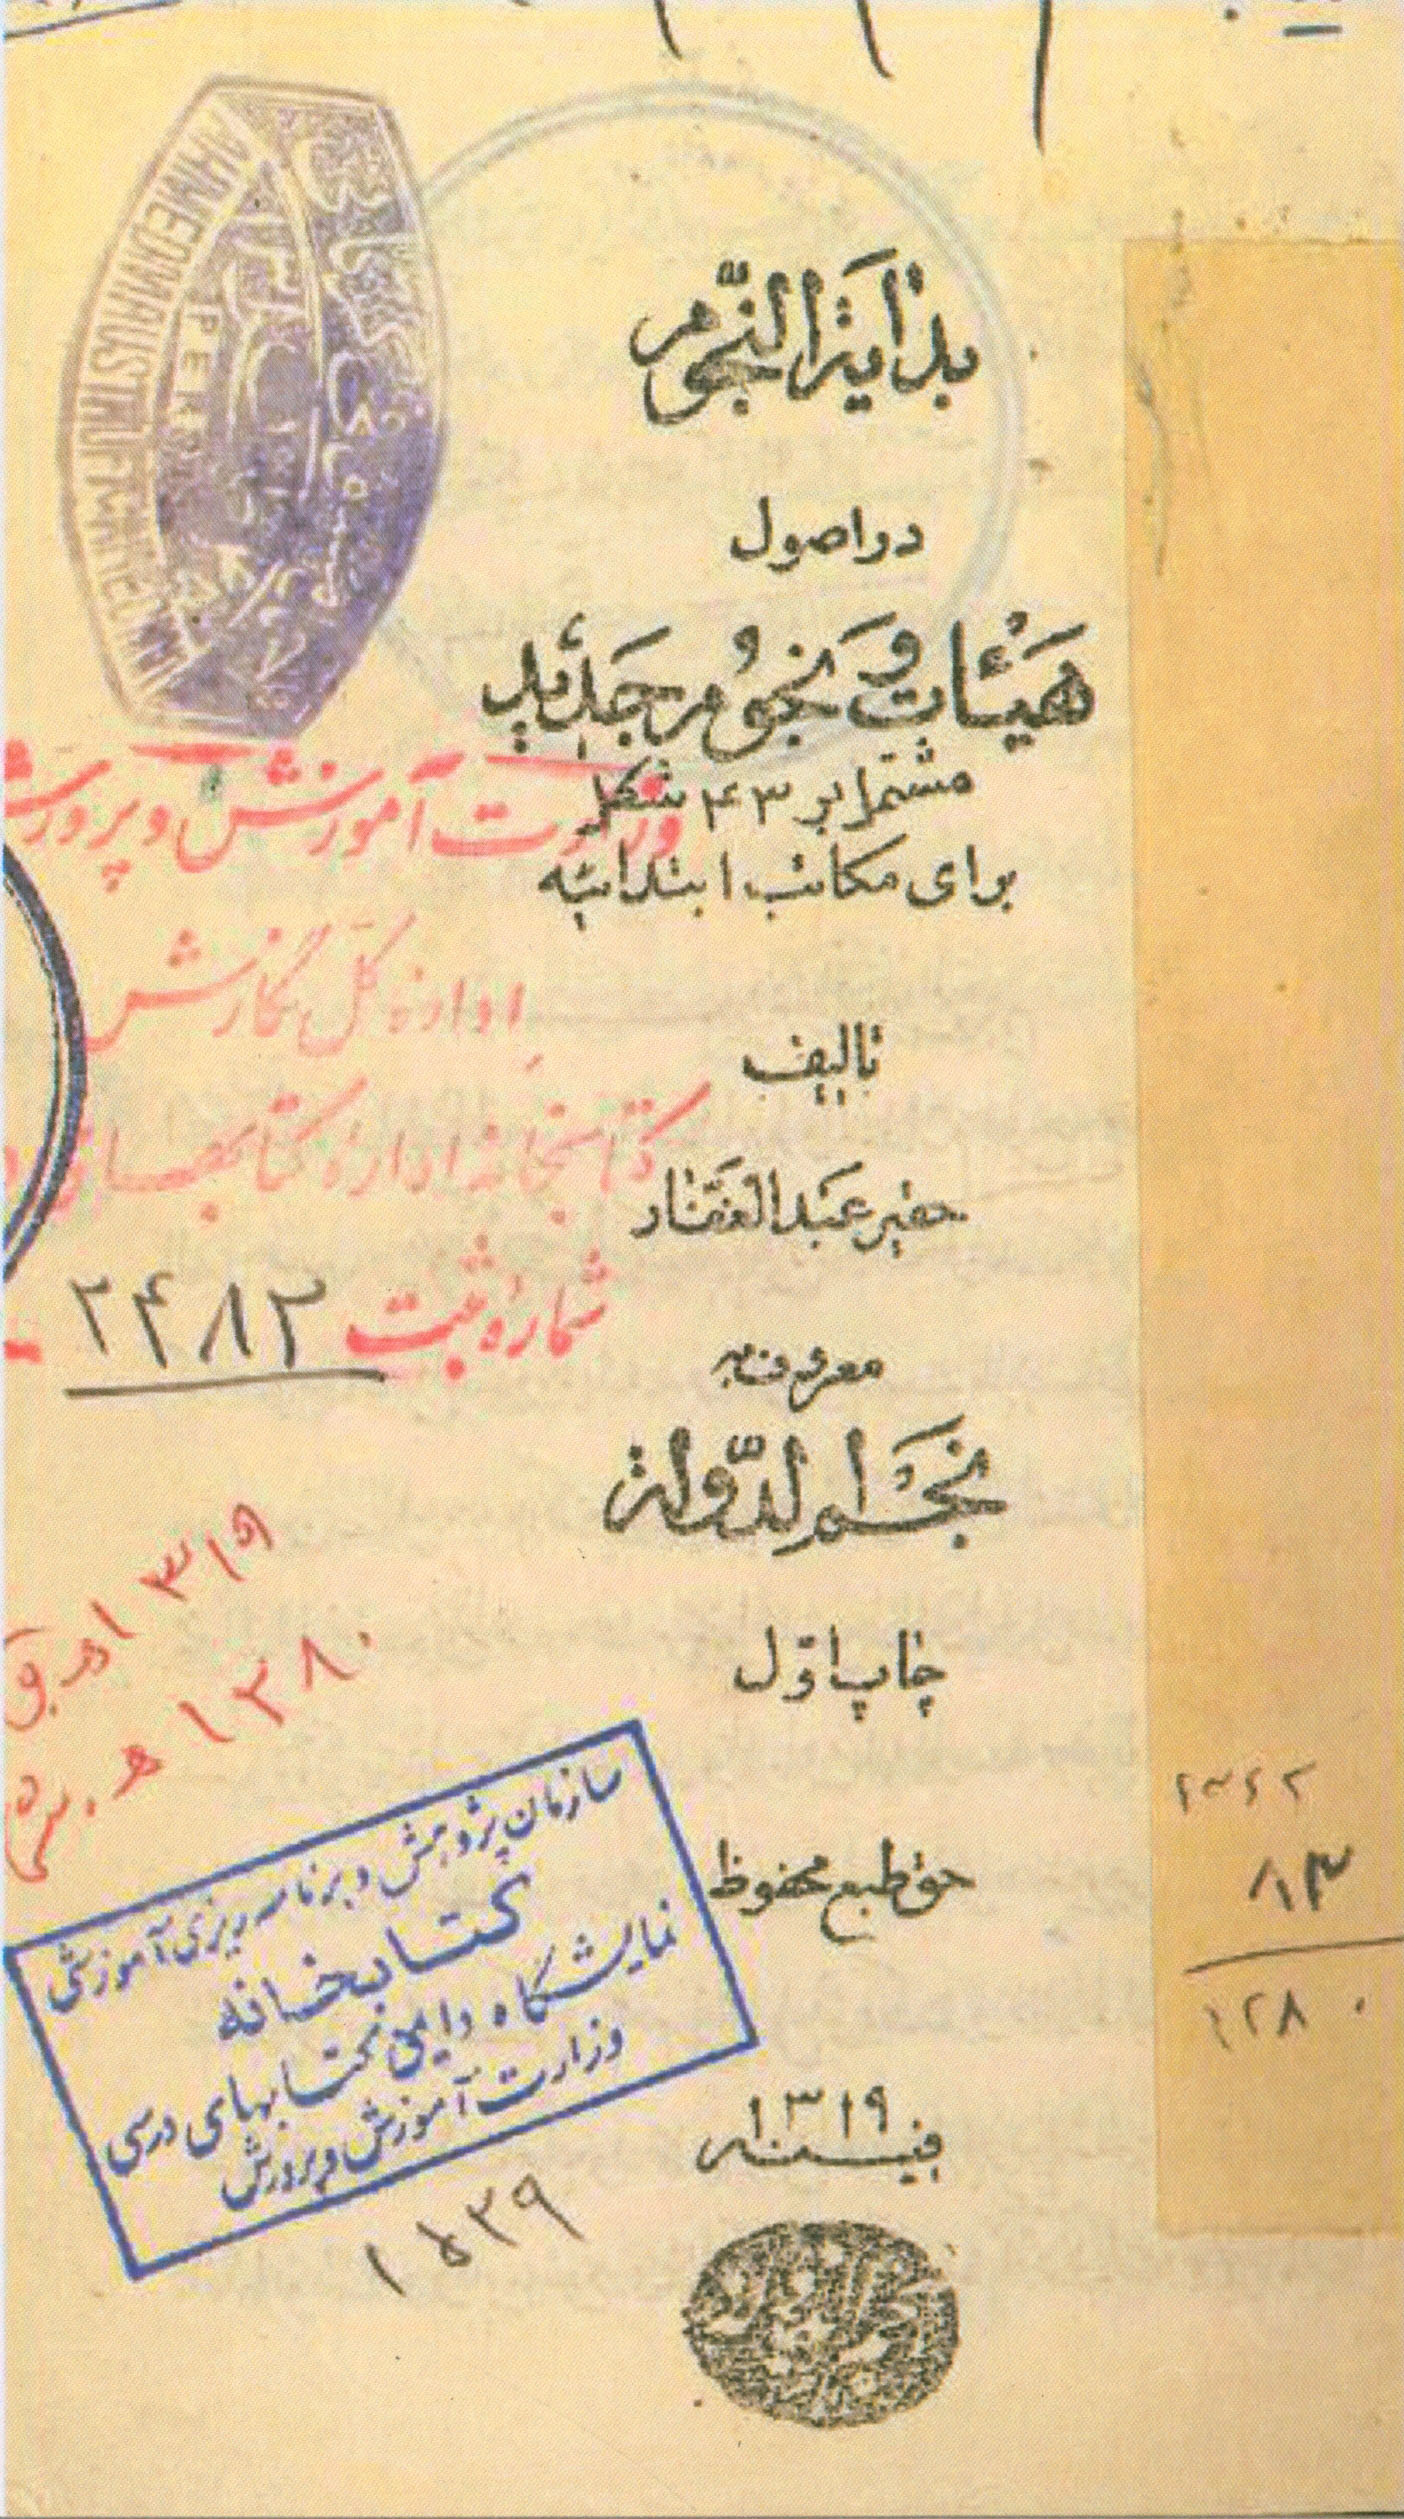 بدایة النجوم
در اصول
هیئات و نجوم جدید
مشتمل بر ۴۳ شکل
برای مکاتب ابتدائیه
تالیف
حقیر عبدالغفار
معروف به
نجم الدولة
چاپ اول
حق طبع محفوظ
فی سنه ۱۳۱۹
وزارت آموزش و پرورش
اداره کل نگارش
کتابخانه اداره کتابهای
شماره ثبت ۲۴۸۲
۱۳۱۹ ه ق
۱۲۸۰ ه.ش
سازمان پژوهش و برنامه ریزی آموزشی
کتابخانه
نمایشگاه دایمی کتابهای درسی
وزارت آموزش و پرورش
۱۵۲۹
۸۳
۱۲۸۰